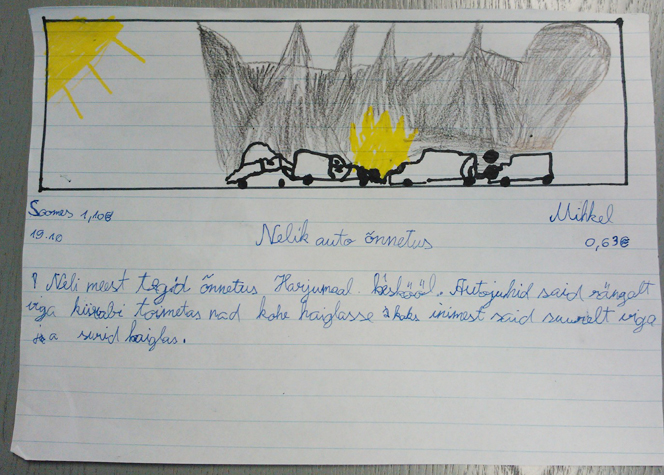 Soomes 1,10€ Mihkel
19.10 Nelik auto õnnetus 0,63€
Neli meest tegid õnnetus Harjumaal. kesköööl. Autojuhid said rängalt
viga kiirabi toimetas nad kohe haiglasse kaks inimest said suurelt viga
ja surid haiglas.